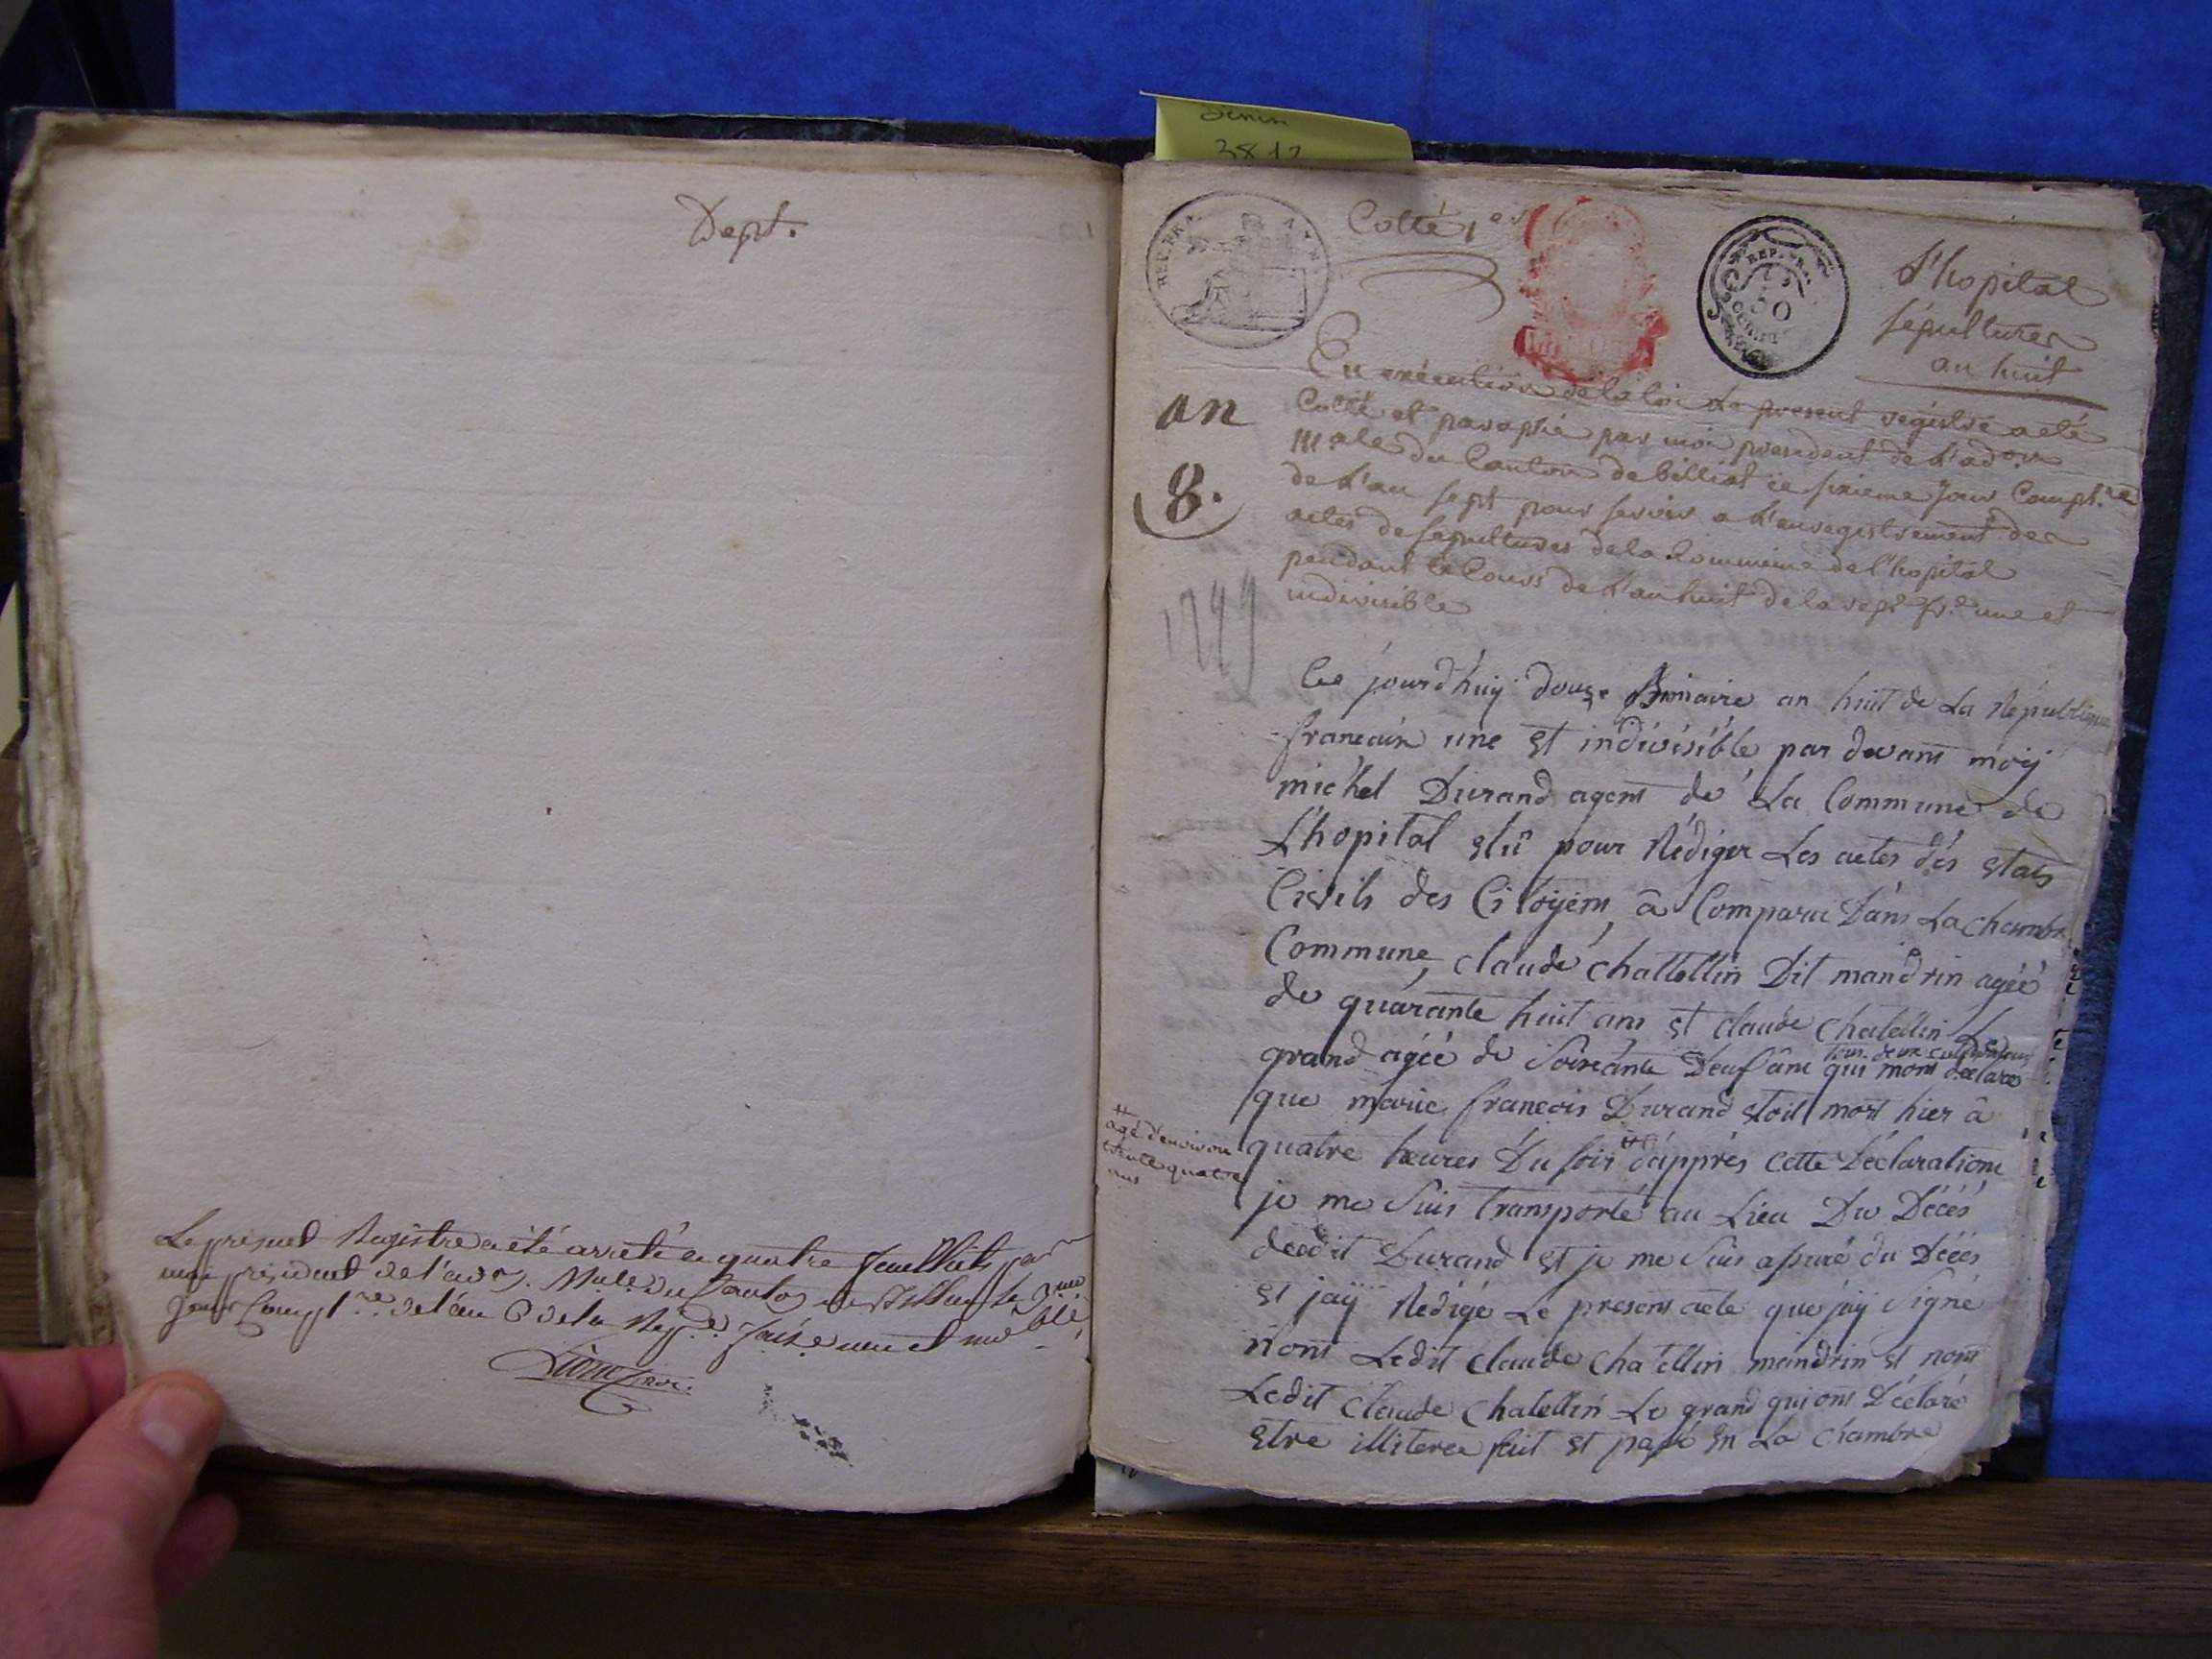 Dept.
Le present Registre a été arrêté a quatre feuillets par
moi president de l'adon. Male du Canton de Billiat le
jour Complre. de l'an 6 de la Rep.
3812
REP. FRA.
Cotté 1er
REP. FRA.
50
L'hopital
sépultures
an huit
an
8.
1799
En exécution de la loi le present registre a eté
Cotté et paraphé par moi president de l'adon
Male du Canton de billiat ce sixieme jour Complre
de l'an sept pour servir a l'enregistrement des
actes de sepultures de la Commune de l'hopital
pendant le Cours de l'an huit de la rep. fr. une et
indivisible
Ce jourd'huij douze Brimaire an huit de La République
francaise une et indivisible par devant moij
michel Durand agent de La Commune de
L'hopital elû pour Rédiger Les actes dés etats
Civils des Citoyens â Comparu Dans La chambre
Commune, claude chattellin Dit mandrin ageé
de quarante huit ans et claude chatellin Le
grand ageé de Soixante Deuf ans tous deux cultivateurs qui mont declaré
que marie francois Durand etoit mort hier â
quatre heures Du soir # d'apprés cette Déclaration
# agé d'environ
trente quatre
ans
je me suis transporté au Lieu Du Décés
dudit Durand et je me suis assuré du Décés
et jaij Redigé Le present acte que jaij signé
Nont Ledit claude chatellin mandrin et nont
Ledit claude chatellin Le grand qui ont Déclaré
etre illiteree fait et passé en La chambre